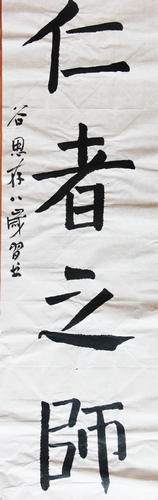 仁者之師
谷恩存八歲習书